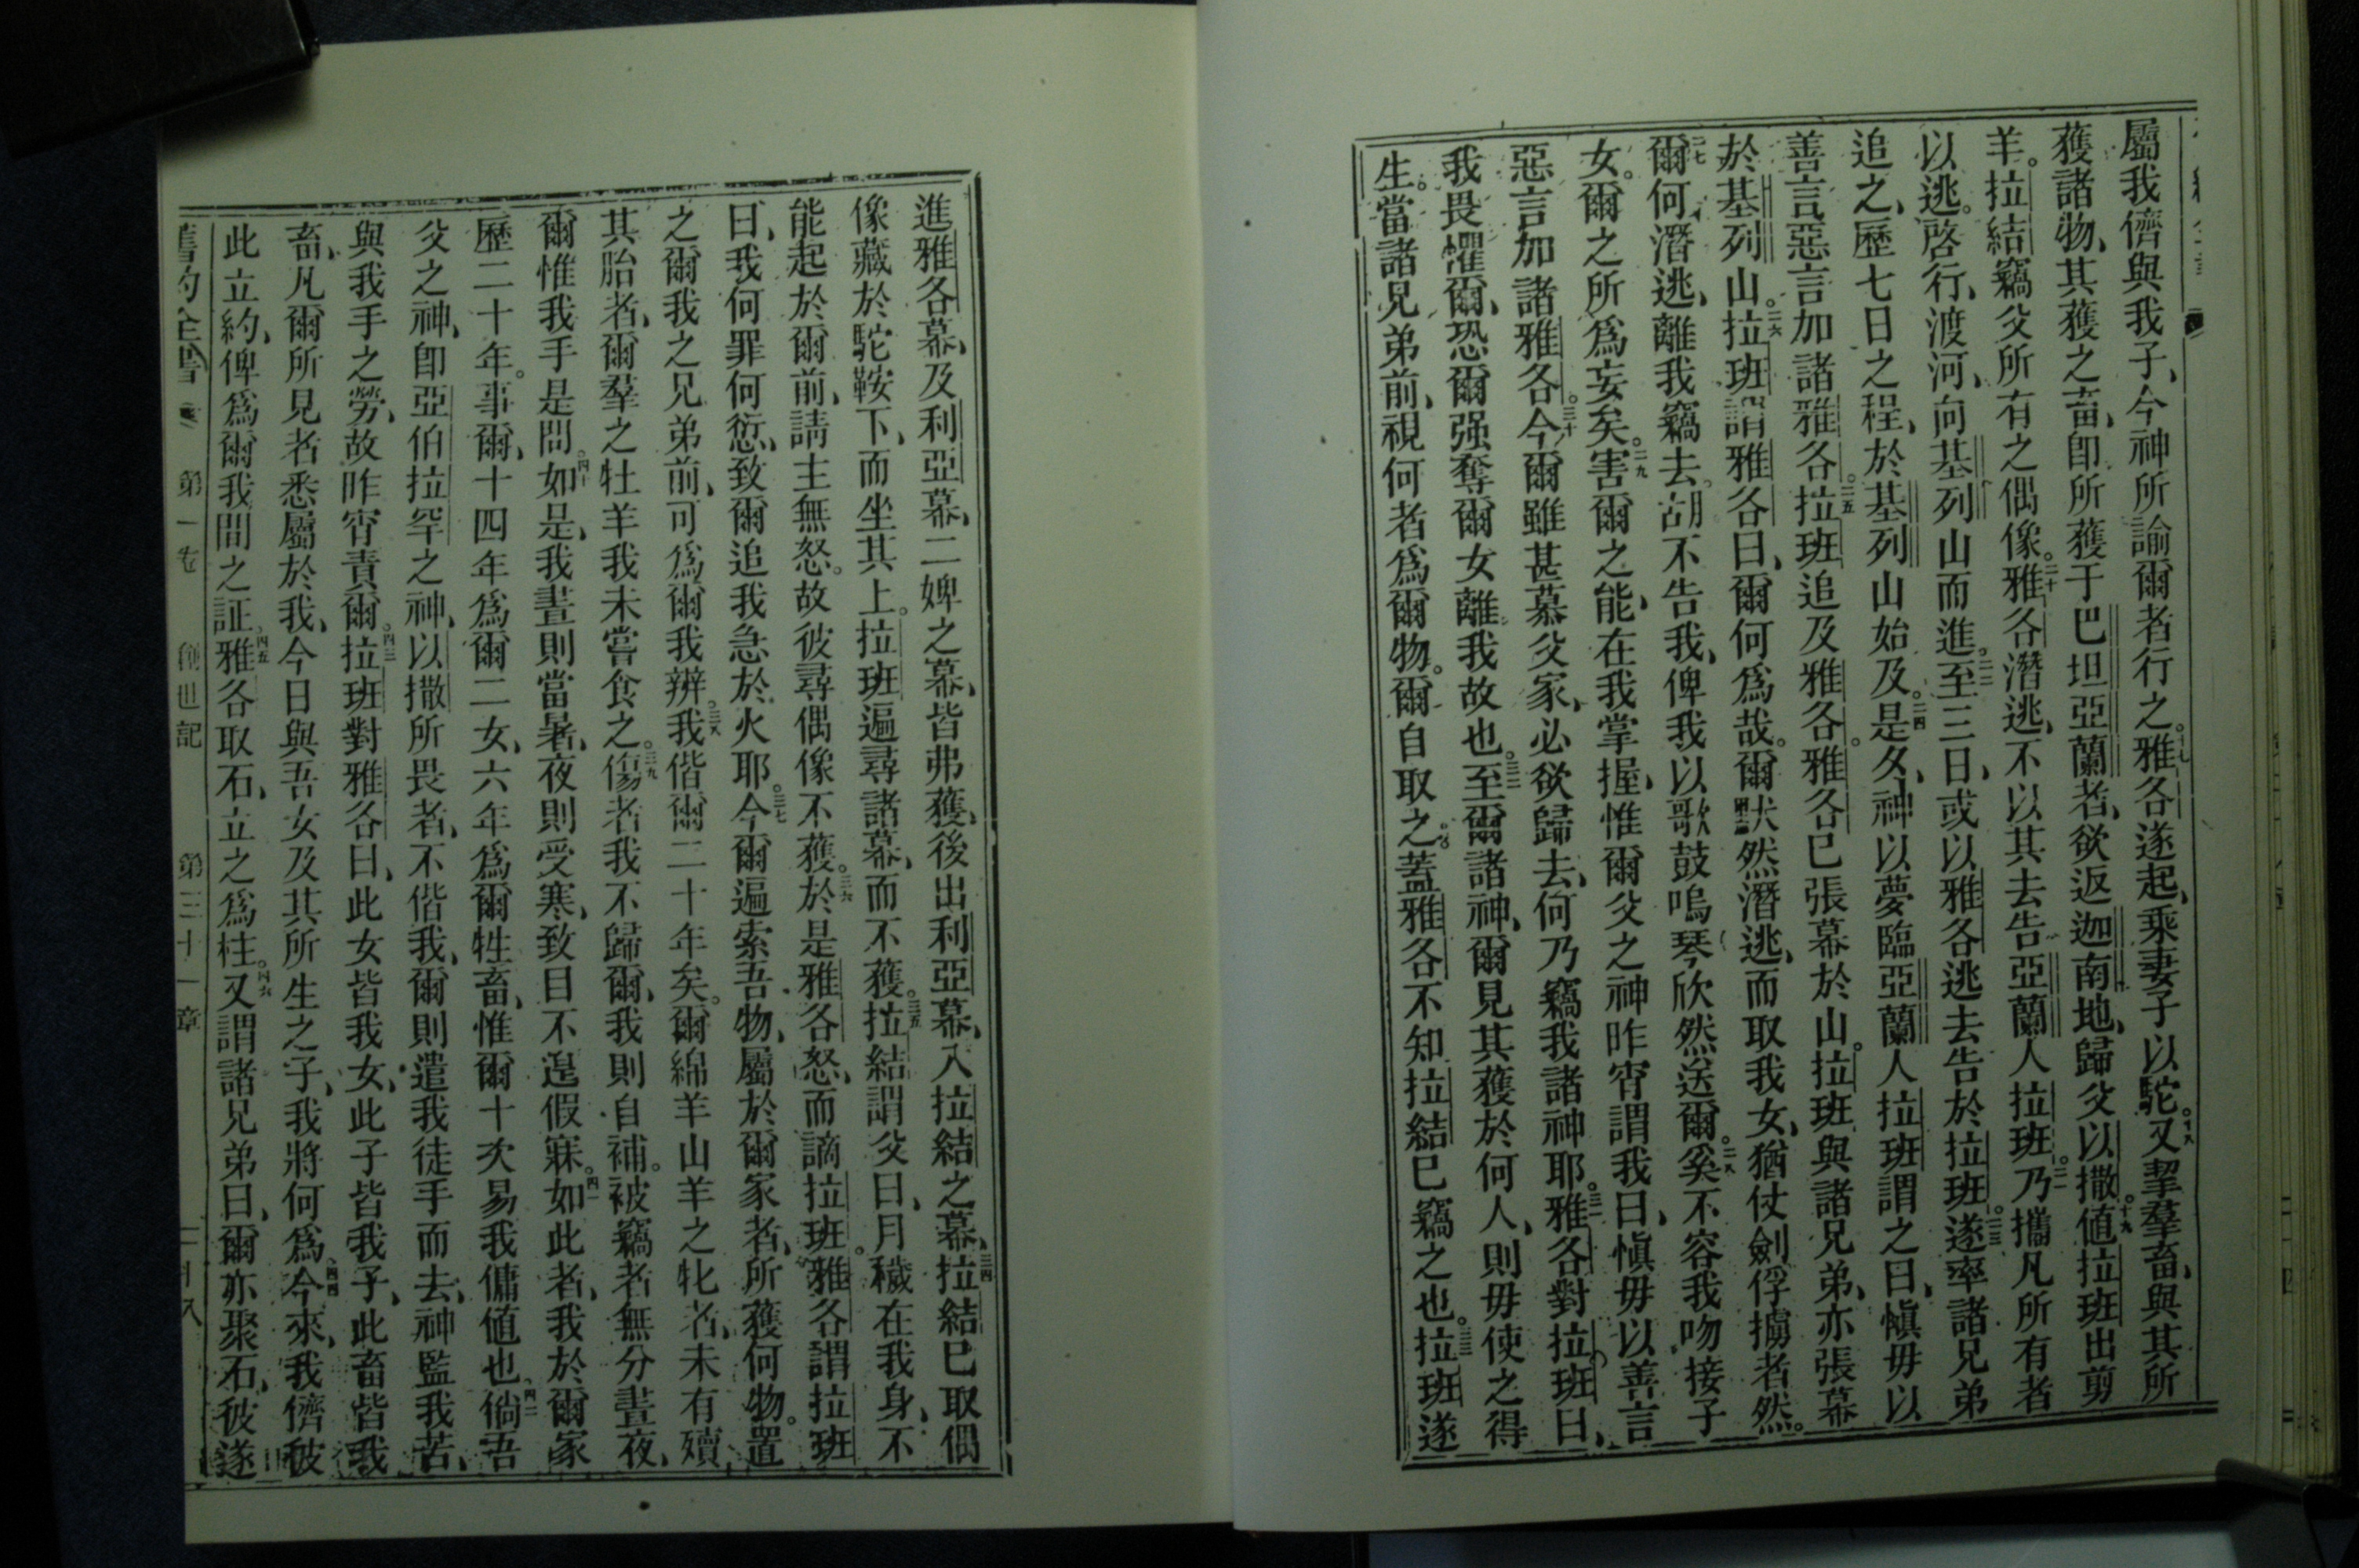 屬我儕與我子、今神所諭爾者行之。十七雅各遂起、乘妻子以駝。十八又挈羣畜、與其所
獲諸物、其獲之畜、即所獲于巴坦亞蘭者、欲返迦南地、歸父以撒。十九値拉班出剪
羊。拉結竊父所有之偶像。二十雅各潛逃、不以其去告亞蘭人拉班。二一乃攜凡所有者
以逃。啓行、渡河、向基列山而進。二二至三日、或以雅各逃去告於拉班。二三遂率諸兄弟
追之、歷七日之程、於基列山始及。二四是夂、神以夢臨亞蘭人拉班謂之曰、愼毋以
善言惡言加諸雅各。二五拉班追及雅各。雅各已張幕於山。拉班與諸兄弟、亦張幕
於基列山。二六拉班謂雅各曰、爾何爲哉。爾默然潛逃、而取我女、猶仗劍俘擄者然。
二七爾何潛逃、離我竊去。胡不告我、俾我以歌鼓鳴琴欣然送爾。二八奚不容我吻接子
女。爾之所爲妄矣。二九害爾之能、在我掌握、惟爾父之神昨宵謂我曰、愼毋以善言
惡言加諸雅各。三十今爾雖甚慕父家、必欲歸去、何乃竊我諸神耶。三一雅各對拉班曰、
我畏懼爾、恐爾强奪爾女離我故也。三二至爾諸神、爾見其獲於何人、則毋使之得
生。當諸兄弟前、視何者爲爾物。爾自取之。蓋雅各不知拉結已竊之也。三三拉班遂
進雅各幕、及利亞幕、二婢之幕、皆弗獲、後出利亞幕、入拉結之幕、三四拉結已取偶
像藏於駝鞍下、而坐其上。拉班遍尋諸幕、而不獲。三五拉結謂父曰、月穢在我身、不
能起於爾前、請主無怒。故彼尋偶像不獲。三六於是雅各怒、而謫拉班。雅各謂拉班
曰、我何罪何愆、致爾追我急於火耶。三七今爾遍索吾物、屬於爾家者、所獲何物。置
之爾我之兄弟前、可爲爾我辨。三八我偕爾二十年矣。爾綿羊山羊之牝者、未有殰
其胎者、爾羣之牡羊我未嘗食之。三九傷者我不歸爾、我則自補。被竊者無分晝夜、
爾惟我手是問。四十如是、我晝則當暑、夜則受寒、致目不遑假寐。四一如此者、我於爾家
歷二十年。事爾、十四年爲爾二女、六年爲爾牲畜、惟爾十次易我傭値也。四二倘吾
父之神、卽亞伯拉罕之神、以撒所畏者、不偕我、爾則遣我徒手而去、神監我苦、
與我手之勞、故昨宵責爾。四三拉班對雅各曰、此女皆我女、此子皆我子、此畜皆我
畜、凡爾所見者悉屬於我、今日與吾女及其所生之子、我將何爲。四四今來、我儕彼
此立約、俾爲爾我間之証。四五雅各取石、立之爲柱。四六又謂諸兄弟曰、爾亦聚石、彼遂
舊約全書 第一卷 創世記 第三十一章